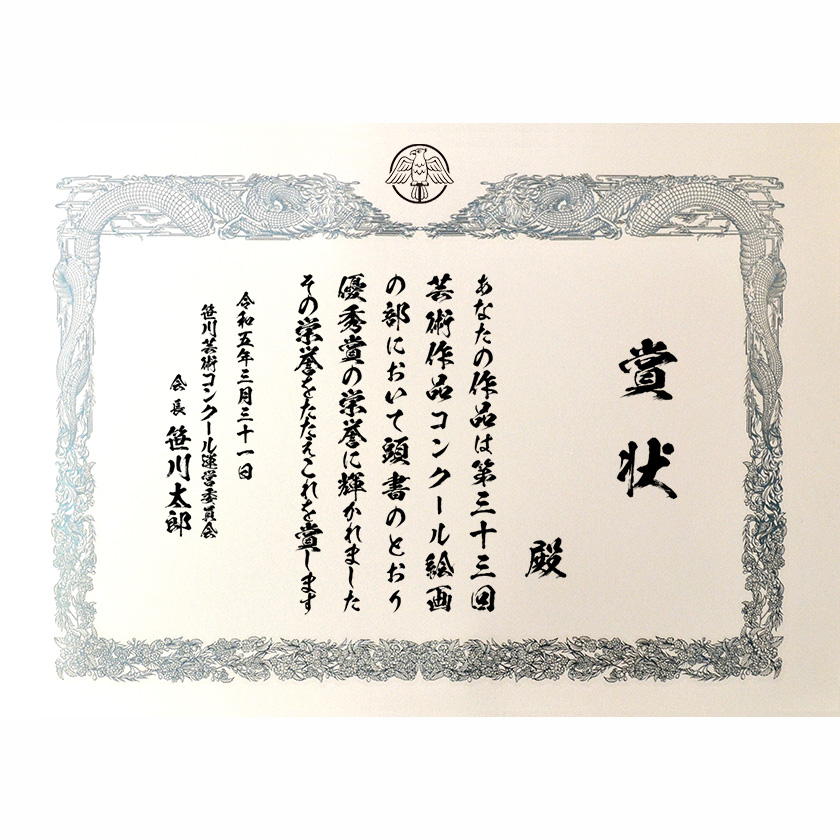 賞状
殿
あなたの作品は第三十三回
芸術作品コンクール絵画
の部において頭書のとおり
優秀賞の栄誉に輝かれました
その栄誉をたたえこれを賞します
令和五年三月三十一日
笹川芸術コンクール運営委員会
会長 笹川太郎